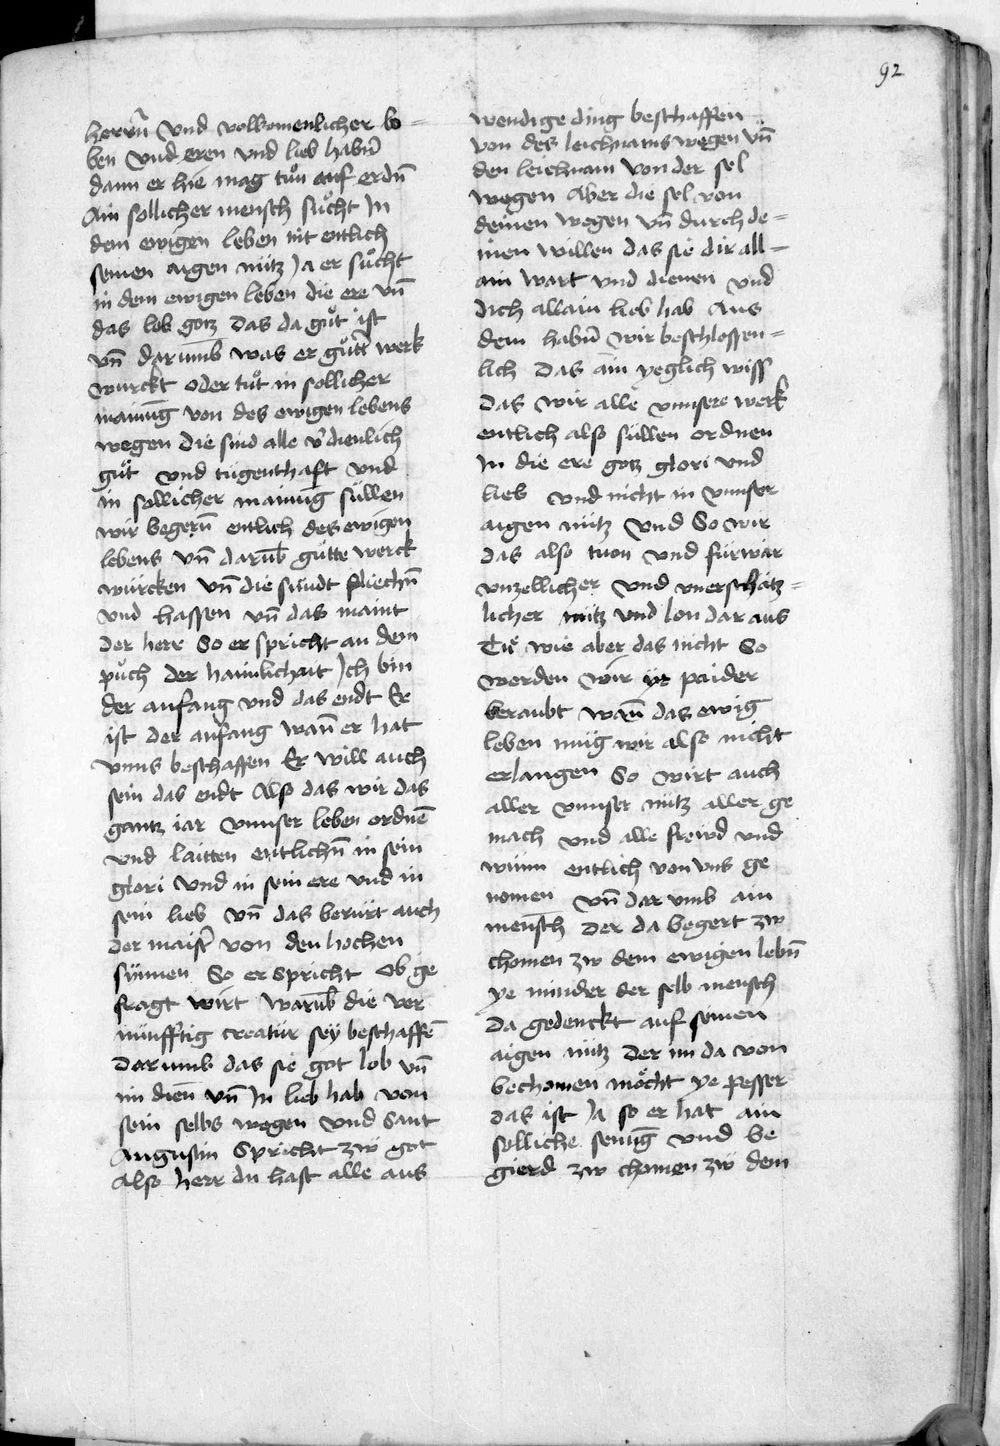 92
herrñ vnd volkomenlicher lo=
ben vnd eren vnd lieb habñ
dann er hie mag tuͦn auf erdñ
Ain sollicher mensch suͦcht In
dem ewigen leben nit entlich
seinen aigen nütz Ja er suͦcht
in dem ewigen leben die ere vñ
das lob gotz das da guͦt ist
vñ darumb was er guͦtt̃ werk
wurckt oder tuͦt in sollicher
mainūg von des ewigen lebens
wegen die sind alle v̾dienlich
guͦt vnd tugenthaft vnd
in sollicher mainūg süllen
wir begerñ entlich des ewigen
lebens vñ darūb gütte werck
würcken vñ die sündt fliechñ
vnd hassen vñ das maint
der herr So er spricht an dem
puͦch der haimlichait Ich bin
der anfang vnd das endt Er
ist der anfang wañ er hat
vnns beschaffen Er will auch
sein das endt Also das wir das
gantz iar vnnser leben ordnē
vnd laitten entlichñ in sein
glori vnd in sein ere vnd in
sein lieb vñ das berürt auch
der maist̾ von den hochen
sinnen So er spricht Ob ge
fragt wirt warūb die ver
nünfftig creatur sey beschaffē
Darumb das sie got lob vñ
im dien vñ In lieb hab von
sein selbs wegen vnd Sant
Augustin Spricht zw got
Also herr du hast alle aus
wendige ding beschaffen
von des leichnams wegen vñ
den leichnam von der sel
wegen Aber die sel von
deinen wegen vñ durch de=
inen willen das sie dir all=
ain wart vnd dienen vnd
dich allain lieb hab Aus
dem habñ wir beschlossen=
lich Das ain yeglich wiss
Das wir alle vnnsere werk
entlich also süllen ordnen
In die ere gotz glori vnd
lieb vnd nicht in vnnser
aigen nütz vnd So wir
das also tuon vnd fürwar
vnzellicher vnd vnerschätz=
licher nütz vnd lon dar aus
wie aber das nicht So
werden wir yr paider
beraubt wañ das ewig
leben müg wir also nicht
erlangen So wirt auch
aller vnnser nütz aller ge
mach vnd alle freẅd vnd
wünn entlich von vns ge
nomen vñ dar vmb ain
mensch der da begert zw
chomen zw dem ewigen lebñ
ye minder der selb mensch
da gedenckt auf seinen
aigen nütz der im da von
bechomen möcht ye pesser
das ist Ja so er hat ain
solliche senūg vnd be
gierd zw chomen zw dem